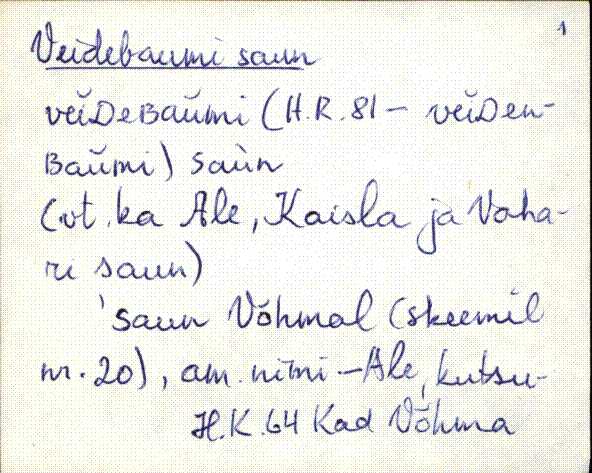 1
Veidebaumi saun
vĕiDeBaŭmi (H.R. 81 – vĕiDen-
Baŭmi) saùn
(vt. ka Ale, Kaisla ja Vaha-
ri saun)
'saun Võhmal (skeemil
nr. 20), am. nimi – Ale, kutsu-
H.K. 64 Kad Võhma